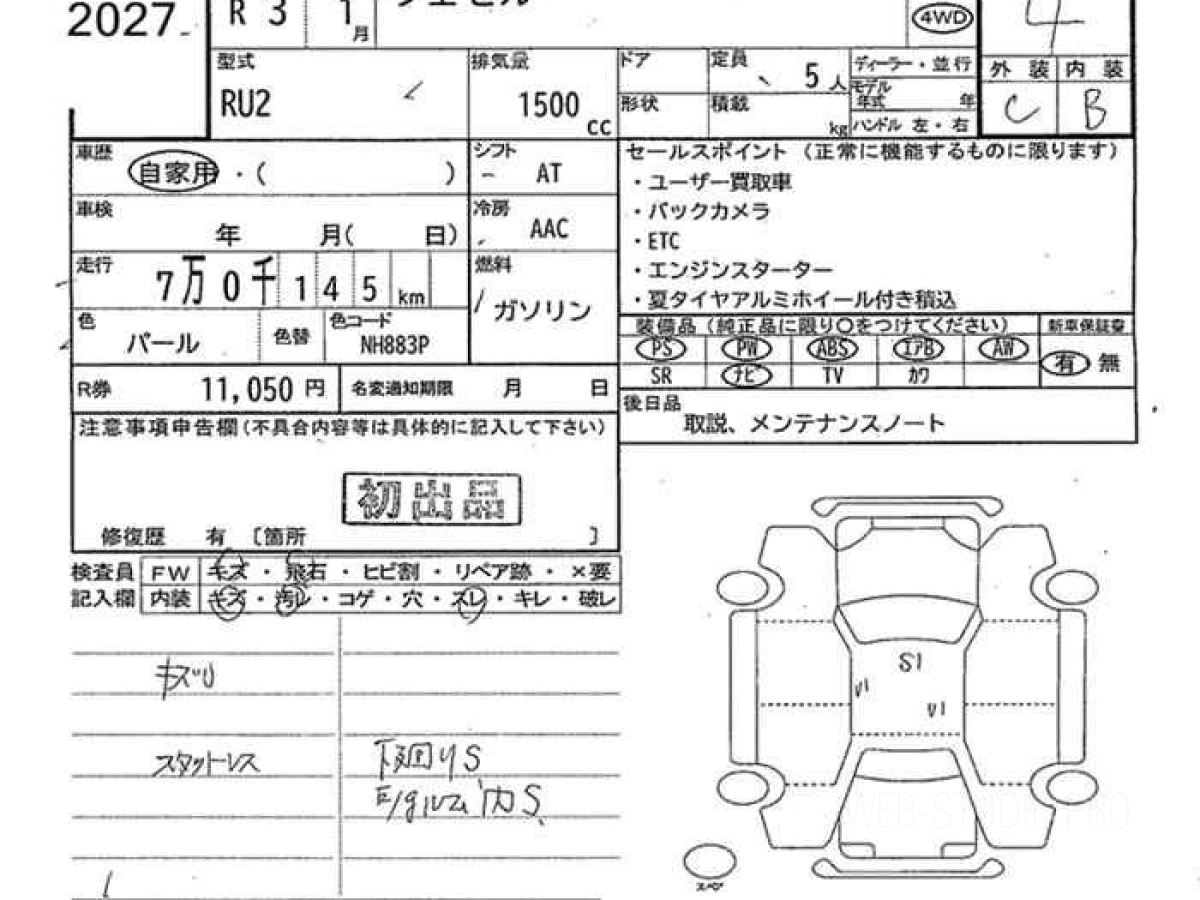 2027
R 3 1月
4WD
4
型式 RU2
排気量 1500 cc
ドア
定員 5人
形状
積載 kg
ディーラー・並行
モデル年式 年
ハンドル 左・右
外装 内装
C B
車歴 自家用・( )
シフト AT
車検 年 月( 日)
冷房 AAC
走行 7万0千145 km
燃料 ガソリン
色 パール
色替
色コード NH883P
R券 11,050円
名変通知期限 月 日
セールスポイント (正常に機能するものに限ります)
・ユーザー買取車
・バックカメラ
・ETC
・エンジンスターター
・夏タイヤアルミホイール付き積込
装備品(純正品に限り○をつけてください)
新車保証書
PS PW ABS エアB AW
SR ナビ TV カワ
有 無
後日品
取説、メンテナンスノート
注意事項申告欄(不具合内容等は具体的に記入して下さい)
初出品
修復歴 有 〔箇所 〕
検査員 FW キズ・飛石・ヒビ割・リペア跡・×要
記入欄 内装 キズ・汚レ・コゲ・穴・スレ・キレ・破レ
スタットレス
下廻りS
E/gルーム内S
S1
V1
V1
スペア
WEB-STUDIO.PRO